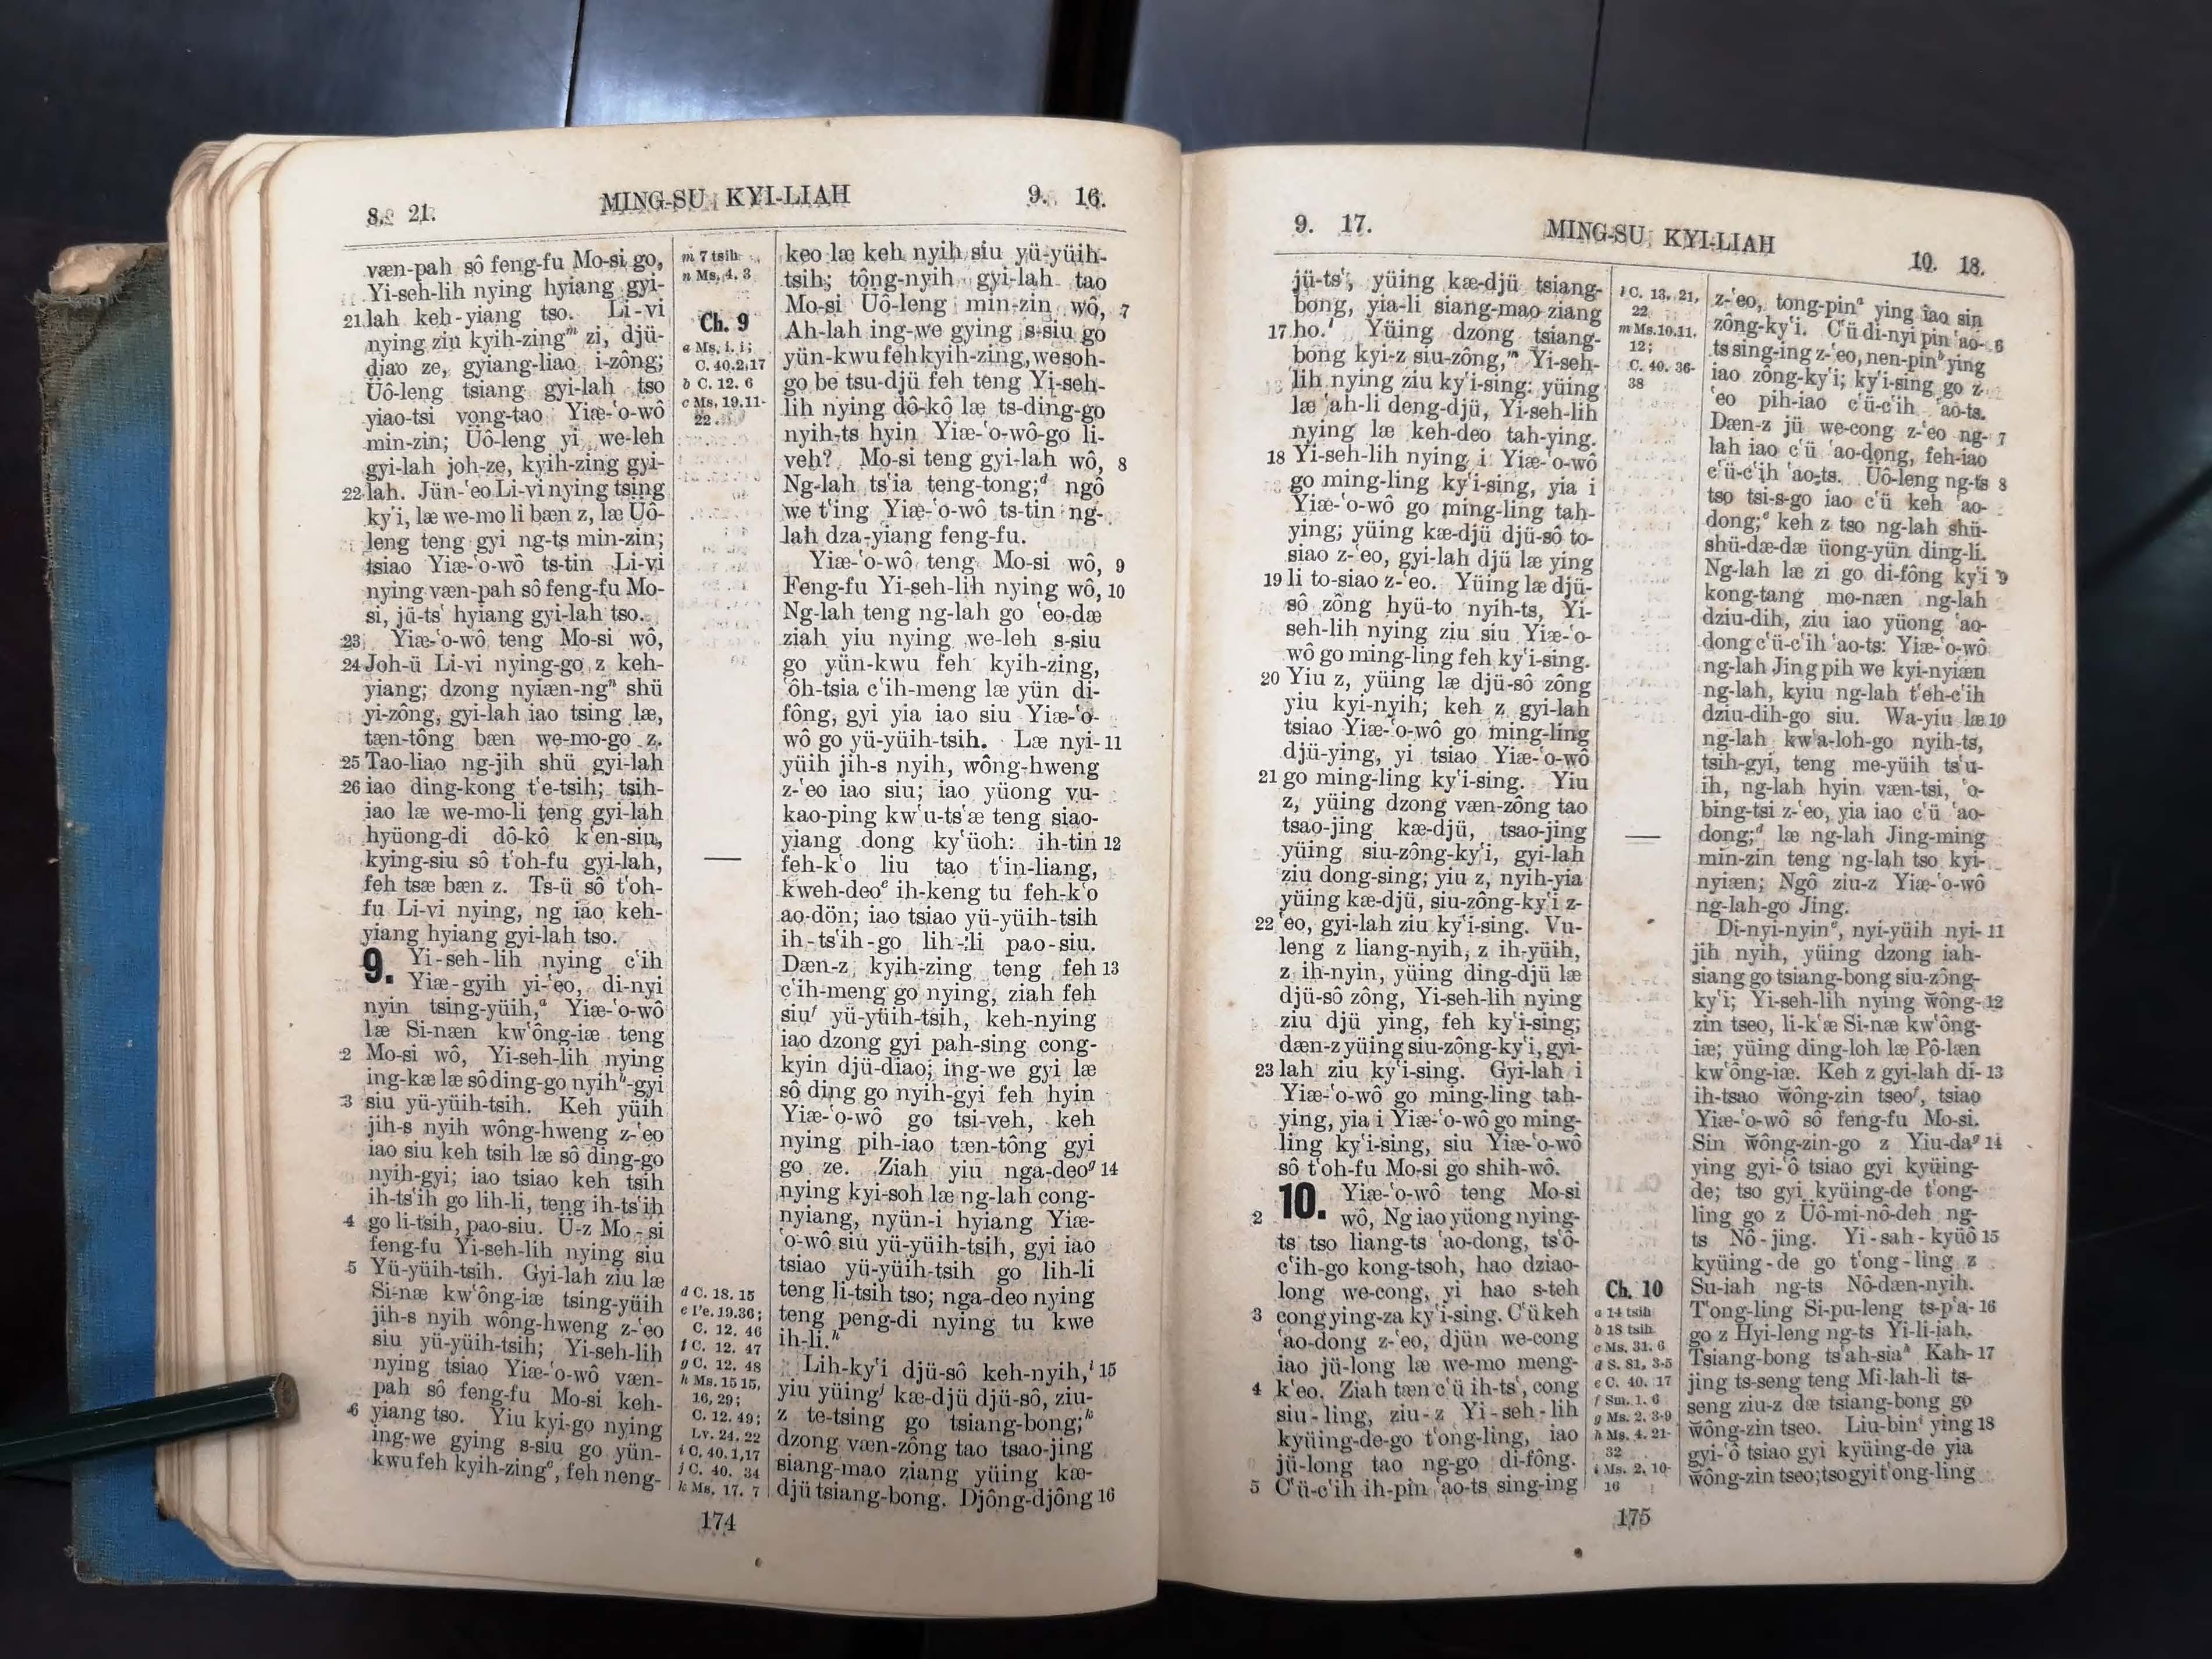 8. 21.
MING-SU KYI-LIAH
9. 16.
væn-pah sô feng-fu Mo-si go,
Yi-seh-lih nying hyiang gyi-
21 lah keh-yiang tso. Li-vi
nying ziu kyih-zingᵐ zi, djü-
diao ze, gyiang-liao i-zông;
Üô-leng tsiang gyi-lah tso
yiao-tsi vong-tao Yiæ-ʻo-wô
min-zin; Üô-leng yi we-leh
gyi-lah joh-ze, kyih-zing gyi-
22 lah. Jün-ʻeo Li-vi nying tsing
kyʻi, læ we-mo li bæn z, læ Üô-
leng teng gyi ng-ts min-zin;
tsiao Yiæ-ʻo-wô ts-tin Li-vi
nying væn-pah sô feng-fu Mo-
si, jü-tsʻ hyiang gyi-lah tso.
23 Yiæ-ʻo-wô teng Mo-si wô,
24 Joh-ü Li-vi nying-go z keh-
yiang; dzong nyiæn-ngⁿ shü
yi-zông, gyi-lah iao tsing læ,
tæn-tông bæn we-mo-go z.
25 Tao-liao ng-jih shü gyi-lah
26 iao ding-kong tʻe-tsih; tsih-
iao læ we-mo-li teng gyi-lah
hyüong-di dô-kô kʻen-siu,
kying-siu sô tʻoh-fu gyi-lah,
feh tsæ bæn z. Ts-ü sô tʻoh-
fu Li-vi nying, ng iao keh-
yiang hyiang gyi-lah tso.
9. Yi-seh-lih nying cʻih
Yiæ-gyih yi-ʻeo, di-nyi
nyin tsing-yüih,ᵃ Yiæ-ʻo-wô
læ Si-næn kwʻông-iæ teng
2 Mo-si wô, Yi-seh-lih nying
ing-kæ læ sô ding-go nyihᵇ-gyi
3 siu yü-yüih-tsih. Keh yüih
jih-s nyih wông-hweng z-ʻeo
iao siu keh tsih læ sô ding-go
nyih-gyi; iao tsiao keh tsih
ih-tsʻih go lih-li, teng ih-tsʻih
4 go li-tsih, pao-siu. Ü-z Mo-si
feng-fu Yi-seh-lih nying siu
5 Yü-yüih-tsih. Gyi-lah ziu læ
Si-næ kwʻông-iæ tsing-yüih
jih-s nyih wông-hweng z-ʻeo
siu yü-yüih-tsih; Yi-seh-lih
nying tsiao Yiæ-ʻo-wô væn-
pah sô feng-fu Mo-si keh-
6 yiang tso. Yiu kyi-go nying
ing-we gying s-siu go yün-
kwu feh kyih-zingᶜ, feh neng-
m 7 tsih
n Ms. 4. 3
Ch. 9
a Ms. i. i;
C. 40.2,17
b C. 12. 6
c Ms. 19.11-
22.
d C. 18. 15
e Iʻe. 19.36;
C. 12. 46
f C. 12. 47
g C. 12. 48
h Ms. 15 15,
16, 29;
C. 12. 49;
Lv. 24. 22
i C. 40. 1,17
j C. 40. 34
k Ms. 17. 7
keo læ keh nyih siu yü-yüih-
tsih; tông-nyih gyi-lah tao
Mo-si Üô-leng min-zin wô, 7
Ah-lah ing-we gying s-siu go
yün-kwu feh kyih-zing, we soh-
go be tsu-djü feh teng Yi-seh-
lih nying dô-kô læ ts-ding-go
nyih-ts hyin Yiæ-ʻo-wô-go li-
veh? Mo-si teng gyi-lah wô, 8
Ng-lah tsʻia teng-tong;ᵈ ngô
we tʻing Yiæ-ʻo-wô ts-tin ng-
lah dza-yiang feng-fu.
Yiæ-ʻo-wô teng Mo-si wô, 9
Feng-fu Yi-seh-lih nying wô, 10
Ng-lah teng ng-lah go ʻeo-dæ
ziah yiu nying we-leh s-siu
go yün-kwu feh kyih-zing,
ʻôh-tsia cʻih-meng læ yün di-
fông, gyi yia iao siu Yiæ-ʻo-
wô go yü-yüih-tsih. Læ nyi- 11
yüih jih-s nyih, wông-hweng
z-ʻeo iao siu; iao yüong vu-
kao-ping kwʻu-tsʻæ teng siao-
yiang dong kyʻüoh: ih-tin 12
feh-kʻo liu tao tʻin-liang,
kweh-deoᵉ ih-keng tu feh-kʻo
ao-dön; iao tsiao yü-yüih-tsih
ih-tsʻih-go lih-li pao-siu.
Dæn-z kyih-zing teng feh 13
cʻih-meng go nying, ziah feh
siuᶠ yü-yüih-tsih, keh-nying
iao dzong gyi pah-sing cong-
kyin djü-diao; ing-we gyi læ
sô ding go nyih-gyi feh hyin
Yiæ-ʻo-wô go tsi-veh, keh
nying pih-iao tæn-tông gyi
go ze. Ziah yiu nga-deoᵍ 14
nying kyi-soh læ ng-lah cong-
nyiang, nyün-i hyiang Yiæ-
ʻo-wô siu yü-yüih-tsih, gyi iao
tsiao yü-yüih-tsih go lih-li
teng li-tsih tso; nga-deo nying
teng peng-di nying tu kwe
ih-li.ʰ
Lih-kyʻi djü-sô keh-nyih,ⁱ 15
yiu yüingʲ kæ-djü djü-sô, ziu-
z te-tsing go tsiang-bong;ᵏ
dzong væn-zông tao tsao-jing
siang-mao ziang yüing kæ-
djü tsiang-bong. Djông-djông 16
174
9. 17.
MING-SU KYI-LIAH
10. 18.
jü-tsʻ, yüing kæ-djü tsiang-
bong, yia-li siang-mao ziang
17 ho.ˡ Yüing dzong tsiang-
bong kyi-z siu-zông,ᵐ Yi-seh-
lih nying ziu kyʻi-sing: yüing
læ ʻah-li deng-djü, Yi-seh-lih
nying læ keh-deo tah-ying.
18 Yi-seh-lih nying i Yiæ-ʻo-wô
go ming-ling kyʻi-sing, yia i
Yiæ-ʻo-wô go ming-ling tah-
ying; yüing kæ-djü djü-sô to-
siao z-ʻeo, gyi-lah djü læ ying
19 li to-siao z-ʻeo. Yüing læ djü-
sô zông hyü-to nyih-ts, Yi-
seh-lih nying ziu siu Yiæ-ʻo-
wô go ming-ling feh kyʻi-sing.
20 Yiu z, yüing læ djü-sô zông
yiu kyi-nyih; keh z gyi-lah
tsiao Yiæ-ʻo-wô go ming-ling
djü-ying, yi tsiao Yiæ-ʻo-wô
21 go ming-ling kyʻi-sing. Yiu
z, yüing dzong væn-zông tao
tsao-jing kæ-djü, tsao-jing
yüing siu-zông-kyʻi, gyi-lah
ziu dong-sing; yiu z, nyih-yia
yüing kæ-djü, siu-zông-kyʻi z-
22 ʻeo, gyi-lah ziu kyʻi-sing. Vu-
leng z liang-nyih, z ih-yüih,
z ih-nyin, yüing ding-djü læ
djü-sô zông, Yi-seh-lih nying
ziu djü ying, feh kyʻi-sing;
dæn-z yüing siu-zông-kyʻi, gyi-
23 lah ziu kyʻi-sing. Gyi-lah i
Yiæ-ʻo-wô go ming-ling tah-
ying, yia i Yiæ-ʻo-wô go ming-
ling kyʻi-sing, siu Yiæ-ʻo-wô
sô tʻoh-fu Mo-si go shih-wô.
10. Yiæ-ʻo-wô teng Mo-si
2 wô, Ng iao yüong nying-
ts tso liang-ts ʻao-dong, tsʻô-
cʻih-go kong-tsoh, hao dziao-
long we-cong, yi hao s-teh
3 cong ying-za kyʻi-sing. Cʻü keh
ʻao-dong z-ʻeo, djün we-cong
iao jü-long læ we-mo meng-
4 kʻeo. Ziah tæn cʻü ih-tsʻ, cong
siu-ling, ziu-z Yi-seh-lih
kyüing-de-go tʻong-ling, iao
jü-long tao ng-go di-fông.
5 Cʻü-cʻih ih-pin ʻao-ts sing-ing
l C. 13. 21,
22
m Ms. 10.11,
12;
C. 40. 36-
38
Ch. 10
a 14 tsih
b 18 tsih
c Ms. 31. 6
d S. 81, 3-5
e C. 40. 17
f Sm. 1. 6
g Ms. 2. 3-9
h Ms. 4. 21-
32
i Ms. 2. 10-
16
z-ʻeo, tong-pinᵃ ying iao sin
zông-kyʻi. Cʻü di-nyi pin ʻao- 6
ts sing-ing z-ʻeo, nen-pinᵇ ying
iao zông-kyʻi; kyʻi-sing go z-
ʻeo pih-iao cʻü-cʻih ʻao-ts.
Dæn-z jü we-cong z-ʻeo ng- 7
lah iao cʻü ʻao-dong, feh-iao
cʻü-cʻih ʻao-ts. Üô-leng ng-ts 8
tso tsi-s-go iao cʻü keh ʻao-
dong;ᶜ keh z tso ng-lah shü-
shü-dæ-dæ üong-yün ding-li.
Ng-lah læ zi go di-fông kyʻi 9
kong-tang mo-næn ng-lah
dziu-dih, ziu iao yüong ʻao-
dong cʻü-cʻih ʻao-ts: Yiæ-ʻo-wô
ng-lah Jing pih we kyi-nyiæn
ng-lah, kyiu ng-lah tʻeh-cʻih
dziu-dih-go siu. Wa-yiu læ 10
ng-lah kwʻa-loh-go nyih-ts,
tsih-gyi, teng me-yüih tsʻu-
ih, ng-lah hyin væn-tsi, ʻo-
bing-tsi z-ʻeo, yia iao cʻü ʻao-
dong;ᵈ læ ng-lah Jing-ming
min-zin teng ng-lah tso kyi-
nyiæn; Ngô ziu-z Yiæ-ʻo-wô
ng-lah-go Jing.
Di-nyi-nyinᵉ, nyi-yüih nyi- 11
jih nyih, yüing dzong iah-
siang go tsiang-bong siu-zông-
kyʻi; Yi-seh-lih nying wông- 12
zin tseo, li-kʻæ Si-næ kwʻông-
iæ; yüing ding-loh læ Pô-læn
kwʻông-iæ. Keh z gyi-lah di- 13
ih-tsao wông-zin tseoᶠ, tsiao
Yiæ-ʻo-wô sô feng-fu Mo-si.
Sin wông-zin-go z Yiu-daᵍ 14
ying gyi-ʻô tsiao gyi kyüing-
de; tso gyi kyüing-de tʻong-
ling go z Üô-mi-nô-deh ng-
ts Nô-jing. Yi-sah-kyüô 15
kyüing-de go tʻong-ling z
Su-iah ng-ts Nô-dæn-nyih.
Tʻong-ling Si-pu-leng ts-pʻa- 16
go z Hyi-leng ng-ts Yi-li-iah.
Tsiang-bong tsʻah-siaʰ Kah- 17
jing ts-seng teng Mi-lah-li ts-
seng ziu-z dæ tsiang-bong go
wông-zin tseo. Liu-binⁱ ying 18
gyi-ʻô tsiao gyi kyüing-de yia
wông-zin tseo; tso gyi tʻong-ling
175